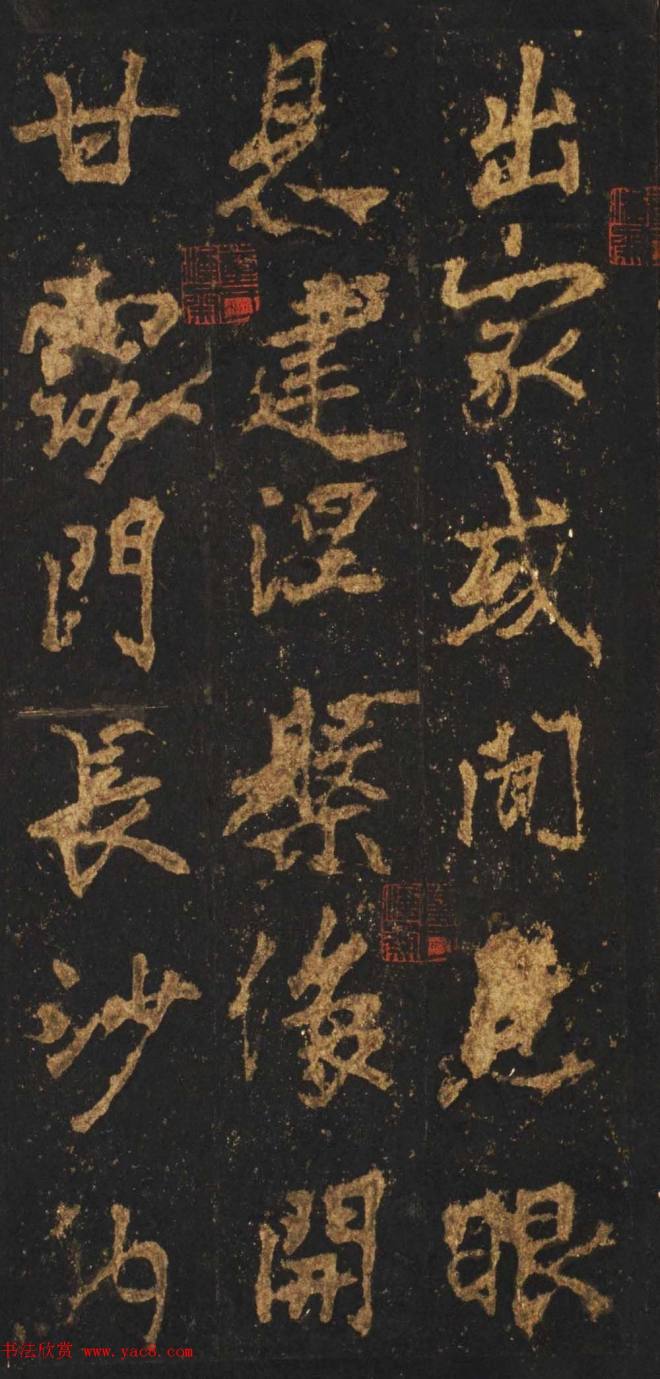 出家或聞見眼
建涅槃復開
甘露門長沙内
书法欣赏 www.yac8.com